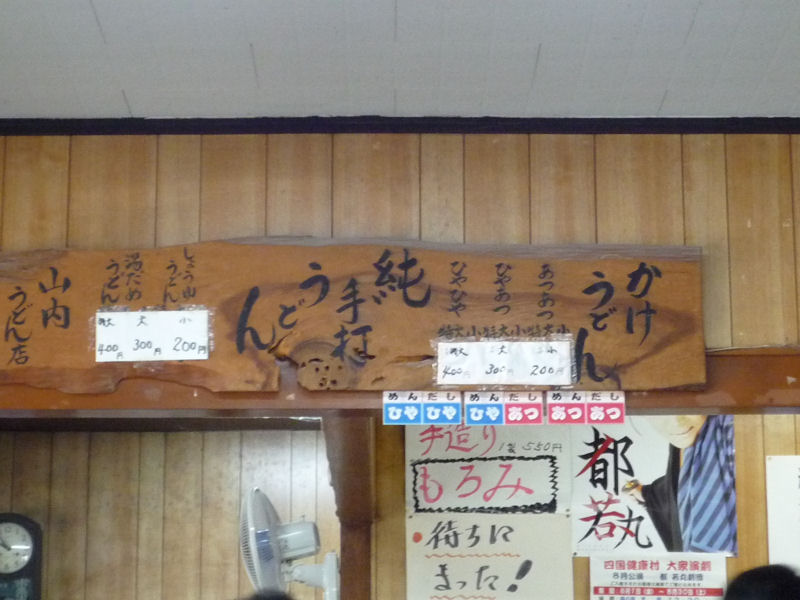 かけ
うどん
あつあつ
ひやあつ
ひやひや
特大 小 特大 小 特大 小
特大 大 小
400円 300円 200円
純
手打
うどん
しょうゆ
うどん
湯だめ
うどん
特大 大 小
400円 300円 200円
山内
うどん店
めん だし めん だし めん だし
ひや ひや ひや あつ あつ あつ
手造り
550円
もろみ
待ちに
まった!
都
若丸
四国健康村 大衆演劇
8月公演 都 若丸劇団